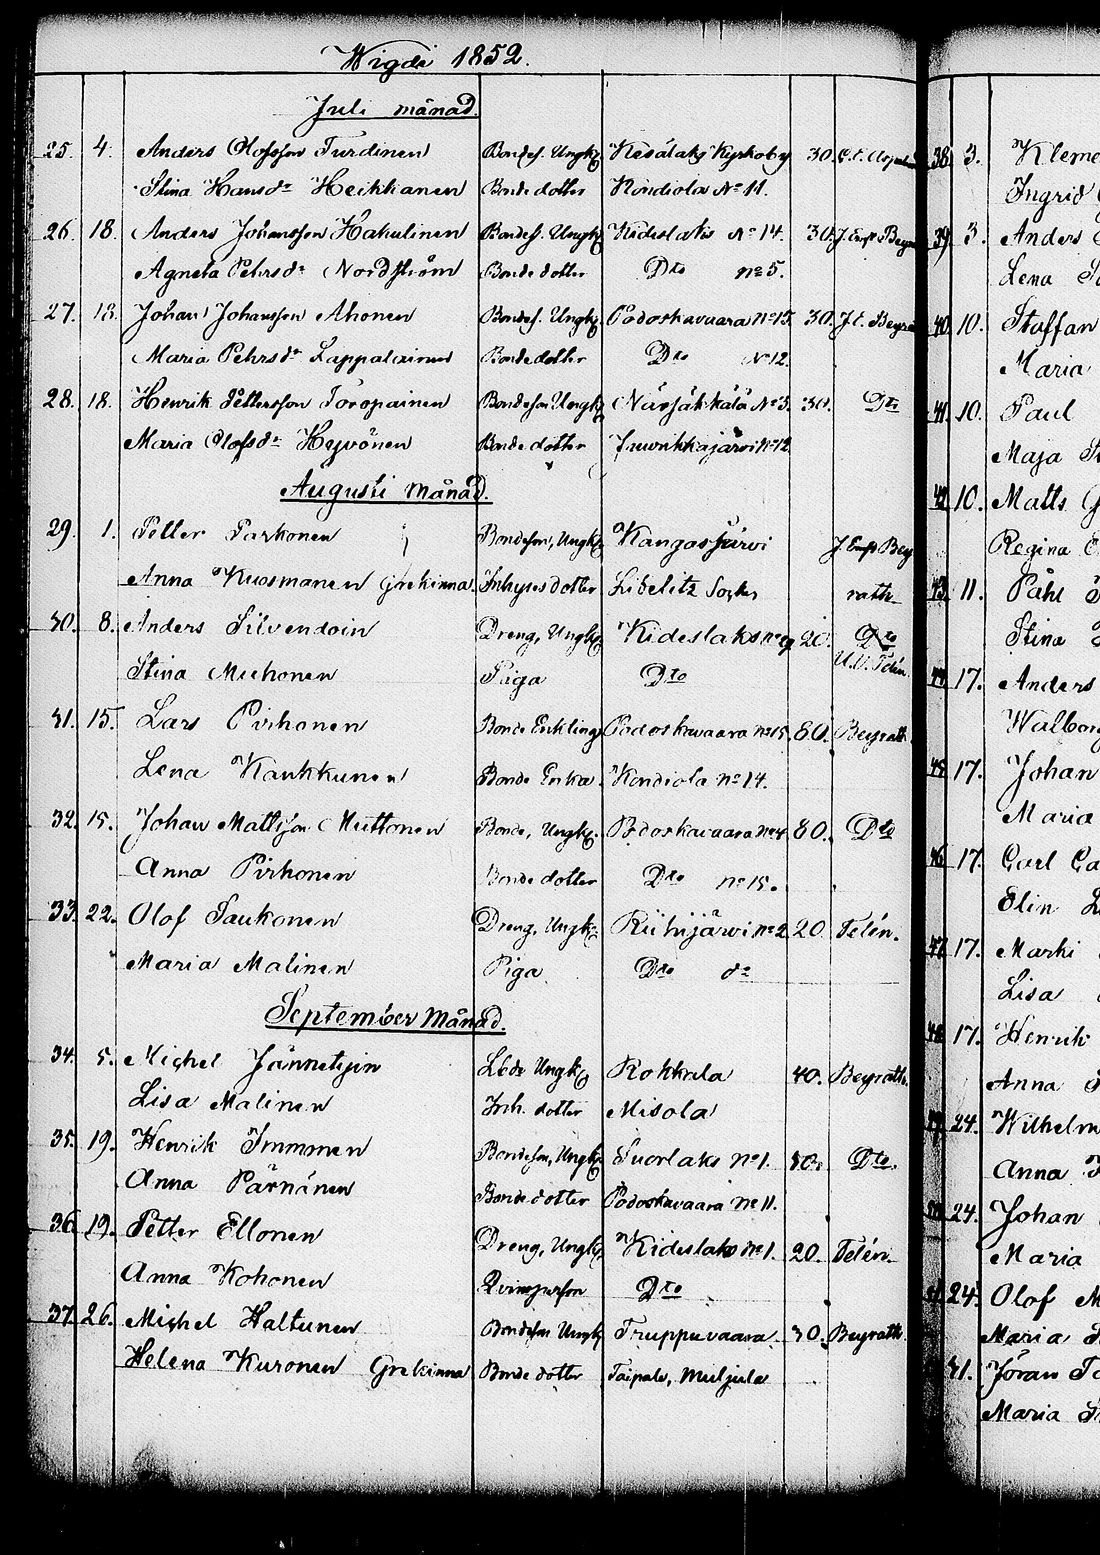 Wigde 1852.
Juli månad.
25. 4. Anders Olofsson Turdinen Bondes. Ungk. Kesälaks Kyrkoby 30.
Stina Hansdr Heikkanen Bonde dotter Kondiola No 11.
26. 18. Anders Johansson Hakulinen Bondes. Ungk. Kideslaks No 14. 30.
Agneta Pehrsdr Nordström Bonde dotter Dto No 5.
27. 18. Johan Johansson Ahonen Bondes. Ungk. Podoskavaara No 15. 30.
Maria Pehrsdr Lappalainen Bonde dotter Dto No 12.
28. 18. Henrik Pettersson Toropainen Bondeson Ungk. Närsäkkälä No 3. 30. Dto
Maria Olofsdr Hyvönen Bonde dotter Juurikkajärvi No 12.
Augusti månad.
29. 1. Petter Parkonen Bondeson, Ungk. Kangasjärvi
Anna Kuosmanen Grekinna. Inhyses dotter Libelitz Socken rath
30. 8. Anders Silvendoin Dreng, Ungk. Kideslaks No 9 20. Dto
Stina Muhonen Piga Dto Telén.
31. 15. Lars Pirhonen Bonde Enkling Podoskavaara No 15. 80. Beyrath.
Lena Kaukkunen Bonde Enka. Kondiola No 14.
32. 15. Johan Mattsson Muttonen Bonde, Ungk. Podoskavaara No 4. 80. Dto
Anna Pirhonen Bonde dotter Dto No 15.
33. 22. Olof Saukonen Dreng, Ungk. Riihijärvi No 2. 20. Telén.
Maria Malinen Piga Dto do
September Månad.
34. 5. Michel Jännetyin Ungk. Rokkala 40. Beyrath.
Lisa Malinen Inh. dotter Misola
35. 19. Henrik Immonen Bondeson, Ungk. Suorlaks No 1. 30. Dto.
Anna Pärnänen Bonde dotter Podoskavaara No 11.
36. 19. Petter Ellonen Dreng, Ungk. Kideslaks No 1. 20. Telén.
Anna Kohonen Qvinsperson Dto
37. 26. Michel Haltunen Bondeson Ungk. Truppuvaara 30. Beyrath.
Helena Kuronen Grekinna Bonde dotter Taipale, Muljula
38. 3. Kleme
Ingrid
39. 3. Anders
Lena
40. 10. Staffan
Maria
41. 10. Paul
Maja
42. 10. Matts
Regina
43. 11. Påhl
Stina
44. 17. Anders
Walborg
45. 17. Johan
Maria
46. 17. Carl
Elin
47. 17. Marki
Lisa
48. 17. Henrik
Anna
24. Wilhelm
Anna
24. Johan
Maria
24. Olof
Maria
31. Jöran
Maria